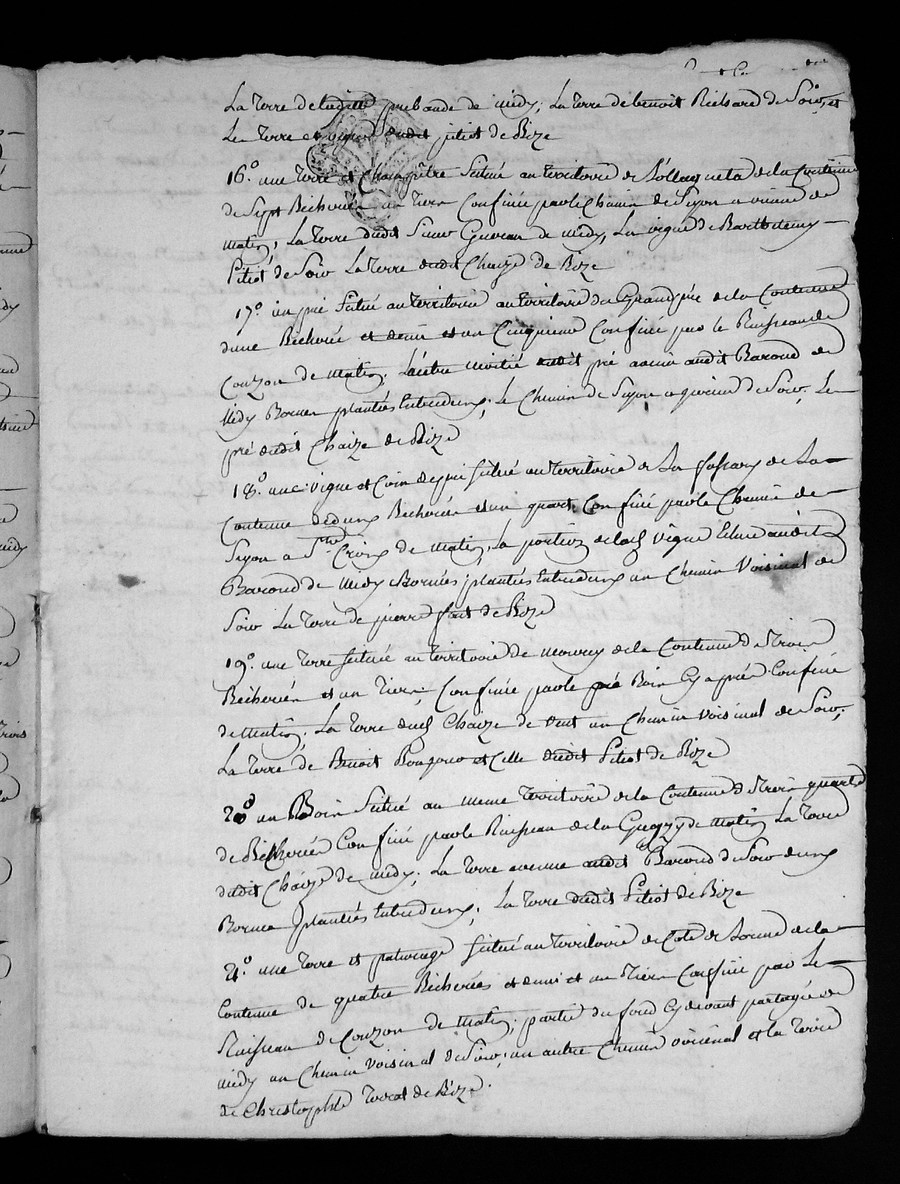 La Terre de ladite prebande de midy; La Terre de benoit Richard de Soir, et
La Terre et vigne dudit pitiot de Bize
16° une Terre et Champêtre Situé au territoire de la Contenue
de Sept Bicherées un Tiers Confinée par le Chemin de Leyon a de
matin, La Terre dudit Sieur de midy, La vigne de Barthelemy
Pitiot de Soir La Terre dudit Chaize de Bize
17° un pré Situé au territoire au territoire du Grand pré de la Contenue
dune Bicherée et demie et un Cinquieme Confiné par le Ruisseau de
Couzon de matin, L'autre moitié dudit pré audit Baroud de
midy Bornes plantées Entredeux, le Chemin de Leyon a de Soir, Le
pré dudit Chaize de Bize
18° une vigne et Coin de pré Situé au territoire de La de La
Contenue de deux Bicherées et un quart, Confiné par le Chemin de
Leyon a Ste Croix de matin, la portion de lad vigne audit
Baroud de midy Bornes plantées Entredeux un Chemin Voisinal de
Soir La Terre de pierre de Bize
19° une Terre Située au territoire de de la Contenue de Trois
Bicherées et un Tiers, Confinée par le pré Bois Cy après Confiné
de matin, La Terre dud Chaize de vent un Chemin Voisinal de Soir,
La Terre de Benoit et Celle dudit Pitiot de Bize
20° un Bois Situé au meme territoire de la Contenue de Trois quarts
de Bicherées Confiné par le Ruisseau de la de matin La Terre
dudit Chaize de midy, La Terre avenue audit Baroud de Soir deux
Bornes plantées Entredeux, La Terre dudit Pitiot de Bize
21° une Terre et paturage Situé au territoire de Cote de de la
Contenue de quatre Bicherées et demi et un Tiers Confiné par Le
Ruisseau de Couzon de matin; partie du fond Cy devant partagée de
midy un Chemin Voisinal de Soir, un autre Chemin voisinal et la Terre
de Christophle de Bize.